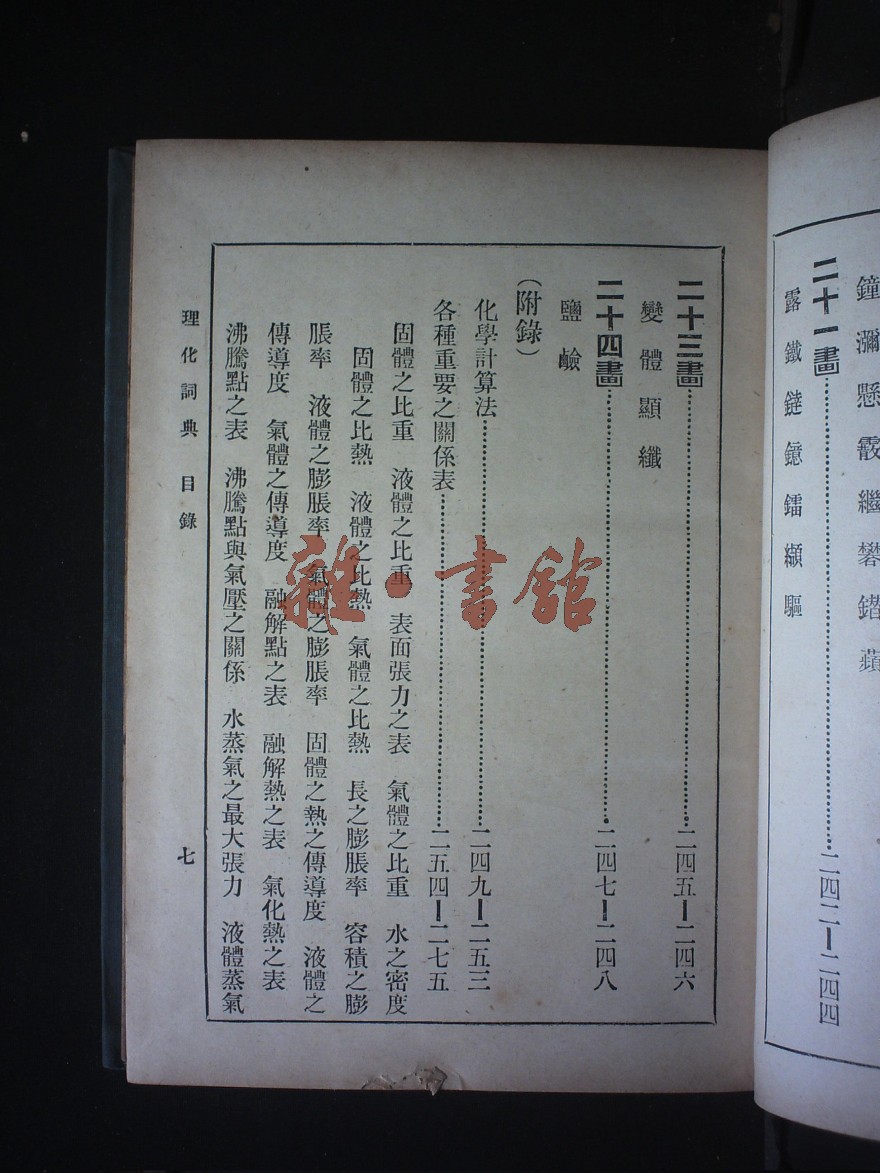 鐘瀰懸霰繼礬鐟蘋
二十一畫……二四二—二四四
露鐵鐽鐿鐳纈驅
二十三畫……二四五—二四六
變體顯纖
二十四畫……二四七—二四八
鹽鹼
（附錄）
化學計算法……二四九—二五三
各種重要之關係表……二五四—二七五
固體之比重　液體之比重　表面張力之表　氣體之比重　水之密度
固體之比熱　液體之比熱　氣體之比熱　長之膨脹率　容積之膨
脹率　液體之膨脹率　氣體之膨脹率　固體之熱之傳導度　液體之
傳導度　氣體之傳導度　融解點之表　融解熱之表　氣化熱之表
沸騰點之表　沸騰點與氣壓之關係　水蒸氣之最大張力　液體蒸氣
理化詞典　目錄
七
雜·書館